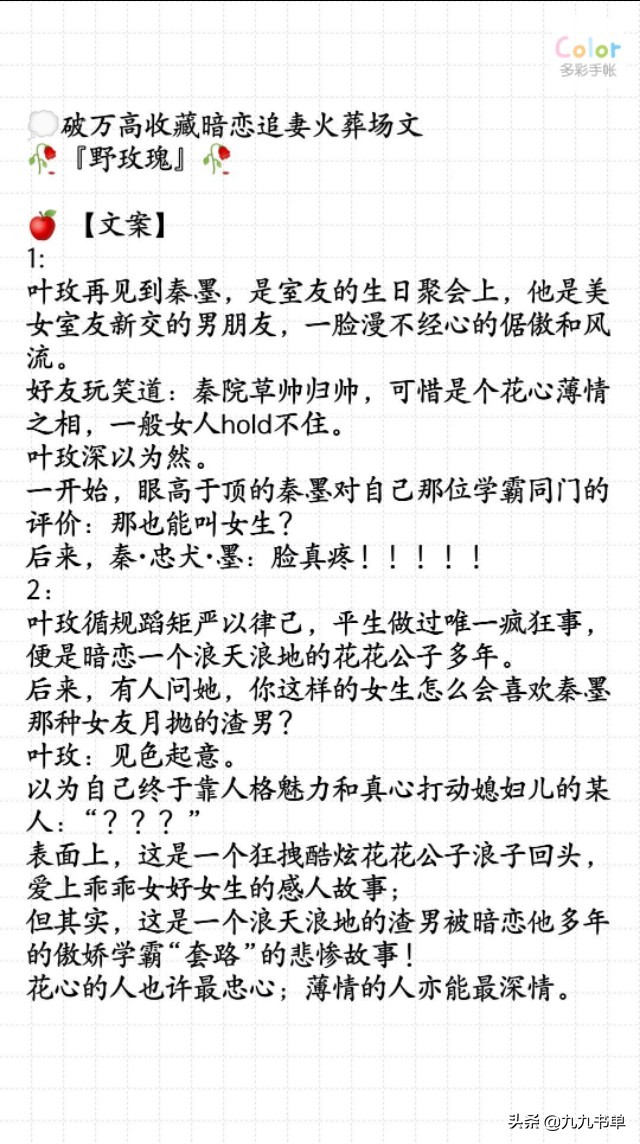 Color
多彩手帐
破万高收藏暗恋追妻火葬场文
『野玫瑰』
【文案】
1:
叶玫再见到秦墨，是室友的生日聚会上，他是美
女室友新交的男朋友，一脸漫不经心的倨傲和风
流。
好友玩笑道：秦院草帅归帅，可惜是个花心薄情
之相，一般女人hold不住。
叶玫深以为然。
一开始，眼高于顶的秦墨对自己那位学霸同门的
评价：那也能叫女生？
后来，秦·忠犬·墨：脸真疼！！！！！
2：
叶玫循规蹈矩严以律己，平生做过唯一疯狂事，
便是暗恋一个浪天浪地的花花公子多年。
后来，有人问她，你这样的女生怎么会喜欢秦墨
那种女友月抛的渣男？
叶玫：见色起意。
以为自己终于靠人格魅力和真心打动媳妇儿的某
人：“？？？”
表面上，这是一个狂拽酷炫花花公子浪子回头，
爱上乖乖女好女生的感人故事；
但其实，这是一个浪天浪地的渣男被暗恋他多年
的傲娇学霸“套路”的悲惨故事！
花心的人也许最忠心；薄情的人亦能最深情。
头条 @九九书单